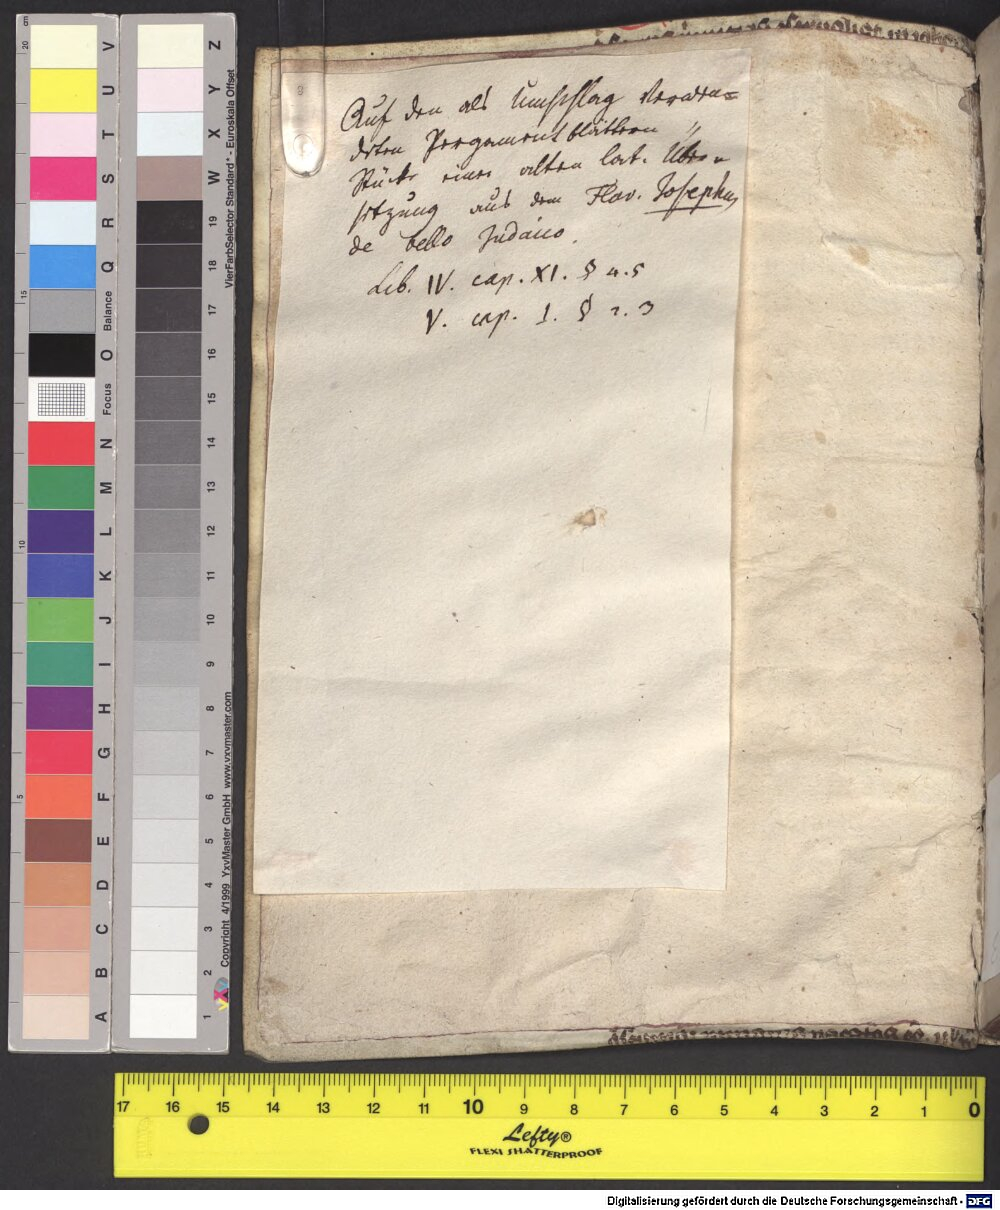 Auf den als Umschlag verwen=
deten Pergamentblättern
Stücke einer alten lat. Über=
setzung aus dem Flav. Josephus
de bello Judaico.
Lib. IV. cap. XI. § 4.5
V. cap. I. § 2.3
cm
20
15
10
5
V
U
T
S
R
Q
Balance
O
Focus
N
M
L
K
J
I
H
G
F
E
D
C
B
A
Z
Y
X
W
19
18
17
16
15
14
13
12
11
10
9
8
7
6
5
4
3
2
1
VierFarbSelector Standard* - Euroskala Offset
Copyright 4/1999 YxyMaster GmbH www.yxymaster.com
17 16 15 14 13 12 11 10 9 8 7 6 5 4 3 2 1 0
Lefty®
FLEXI SHATTERPROOF
Digitalisierung gefördert durch die Deutsche Forschungsgemeinschaft - DFG